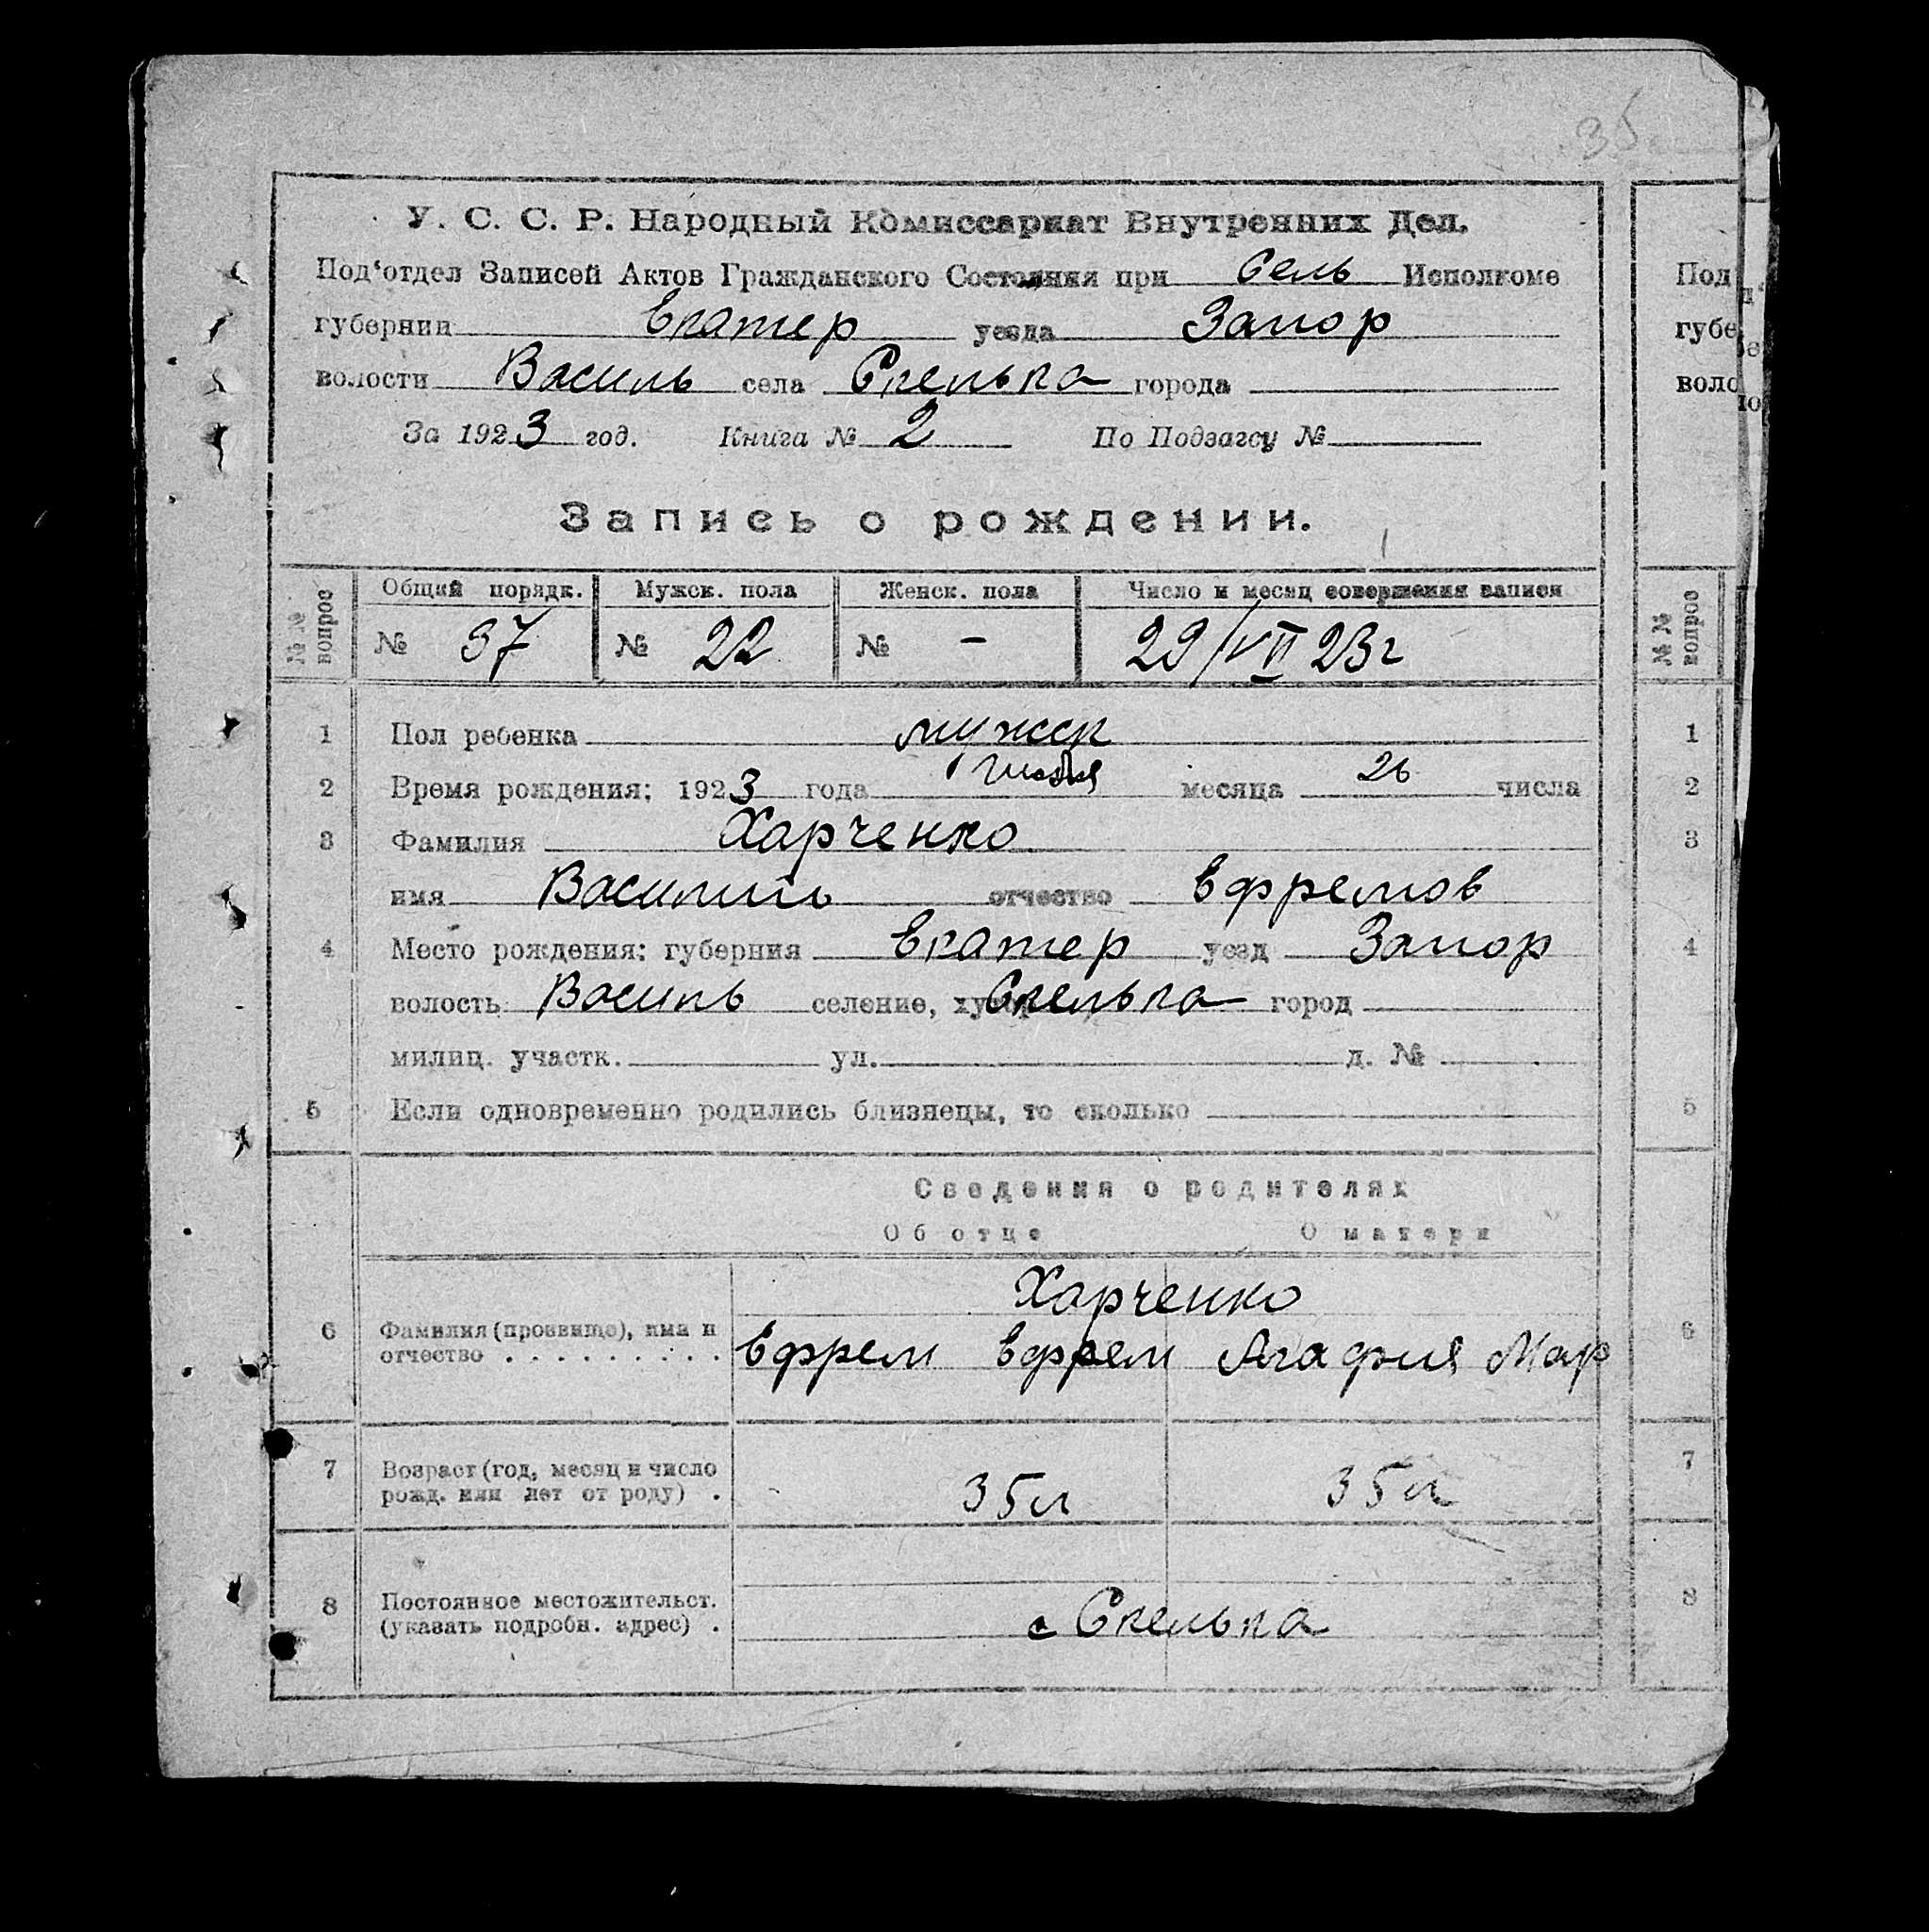 35
У. С. С. Р. Народный Комиссариат Внутренних Дел.
Под‘отдел Записей Актов Гражданского Состояния при Сель Исполкоме
губернии Екатер уезда Запор
волости Василь села Скелька города
За 1923 год. Книга № 2 По Подзагсу №
Запись о рождении.
№№ вопрос
Общий порядк. Мужск. пола Женск. пола Число и месяц совершения записи
№ 37 № 22 № - 29/VII 23г
1 Пол ребенка мужск
2 Время рождения: 1923 года июля месяца 26 числа
3 Фамилия Харченко
имя Василий отчество Ефремов
4 Место рождения: губерния Екатер уезд Запор
волость Василь селение, Скелька город
милиц. участк. ул. д. №
5 Если одновременно родились близнецы, то сколько
Сведения о родителях
Об отце О матери
Харченко
6 Фамилия (прозвище), имя и отчество Ефрем Ефрем Агафия Мар
7 Возраст (год, месяц и число рожд. или лет от роду) 35 л 35 л
8 Постоянное местожительст. (указать подробн. адрес) с Скелька
Под
губе
воло
№№ вопрос
1
2
3
4
5
6
7
8